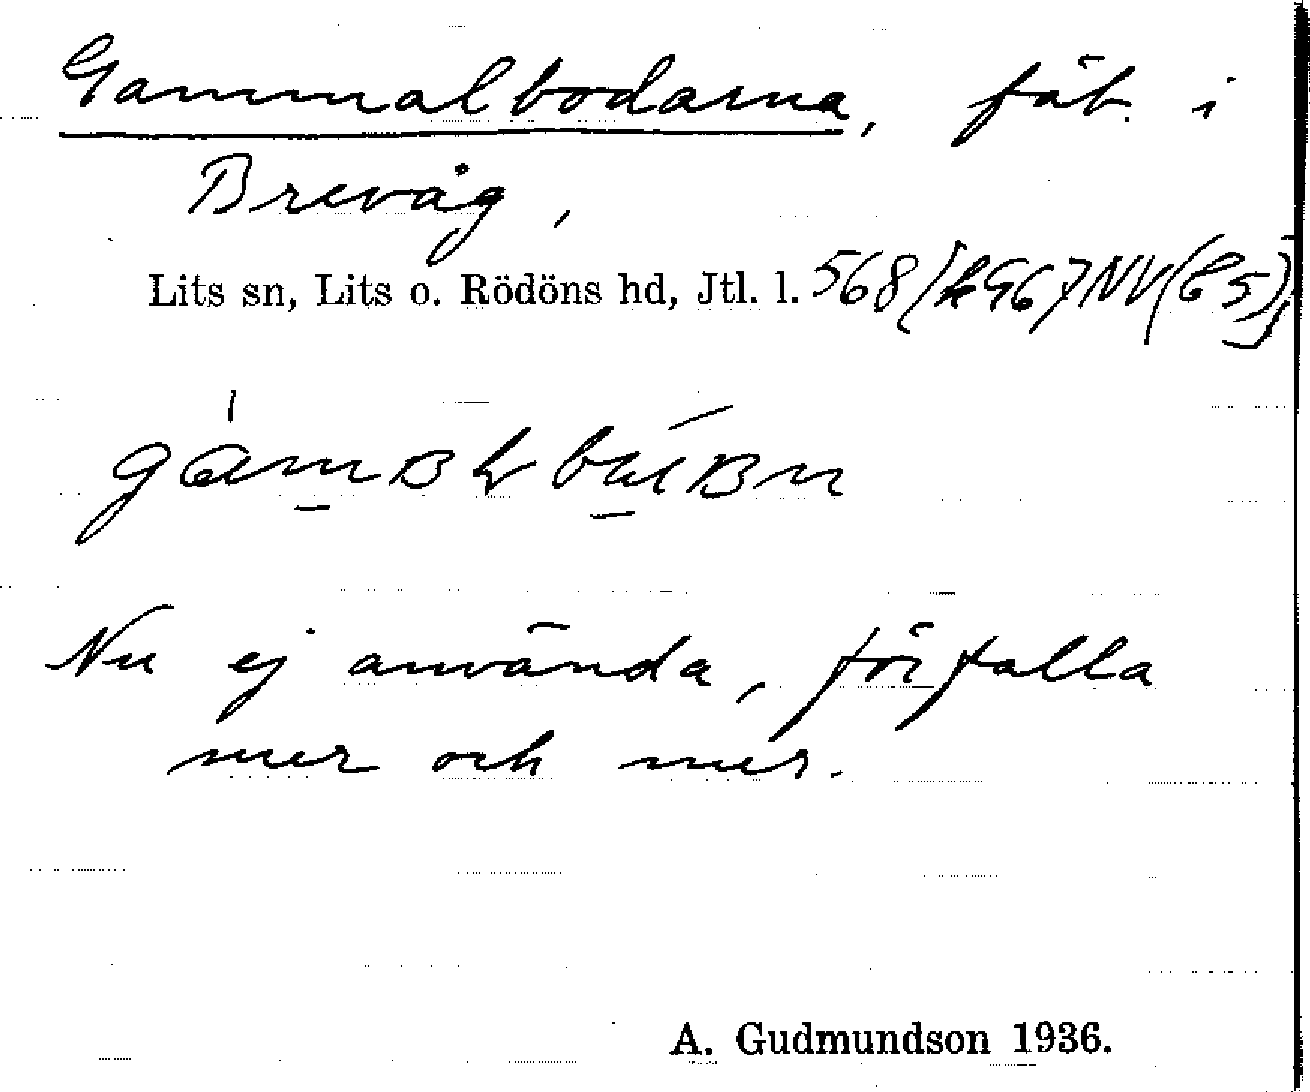 Gammalbodarna, fäb. i
Brevåg,
Lits sn, Lits o. Rödöns hd, Jtl. l. 568
Nu ej använda, förfalla
mer och mer.
A. Gudmundson 1936.